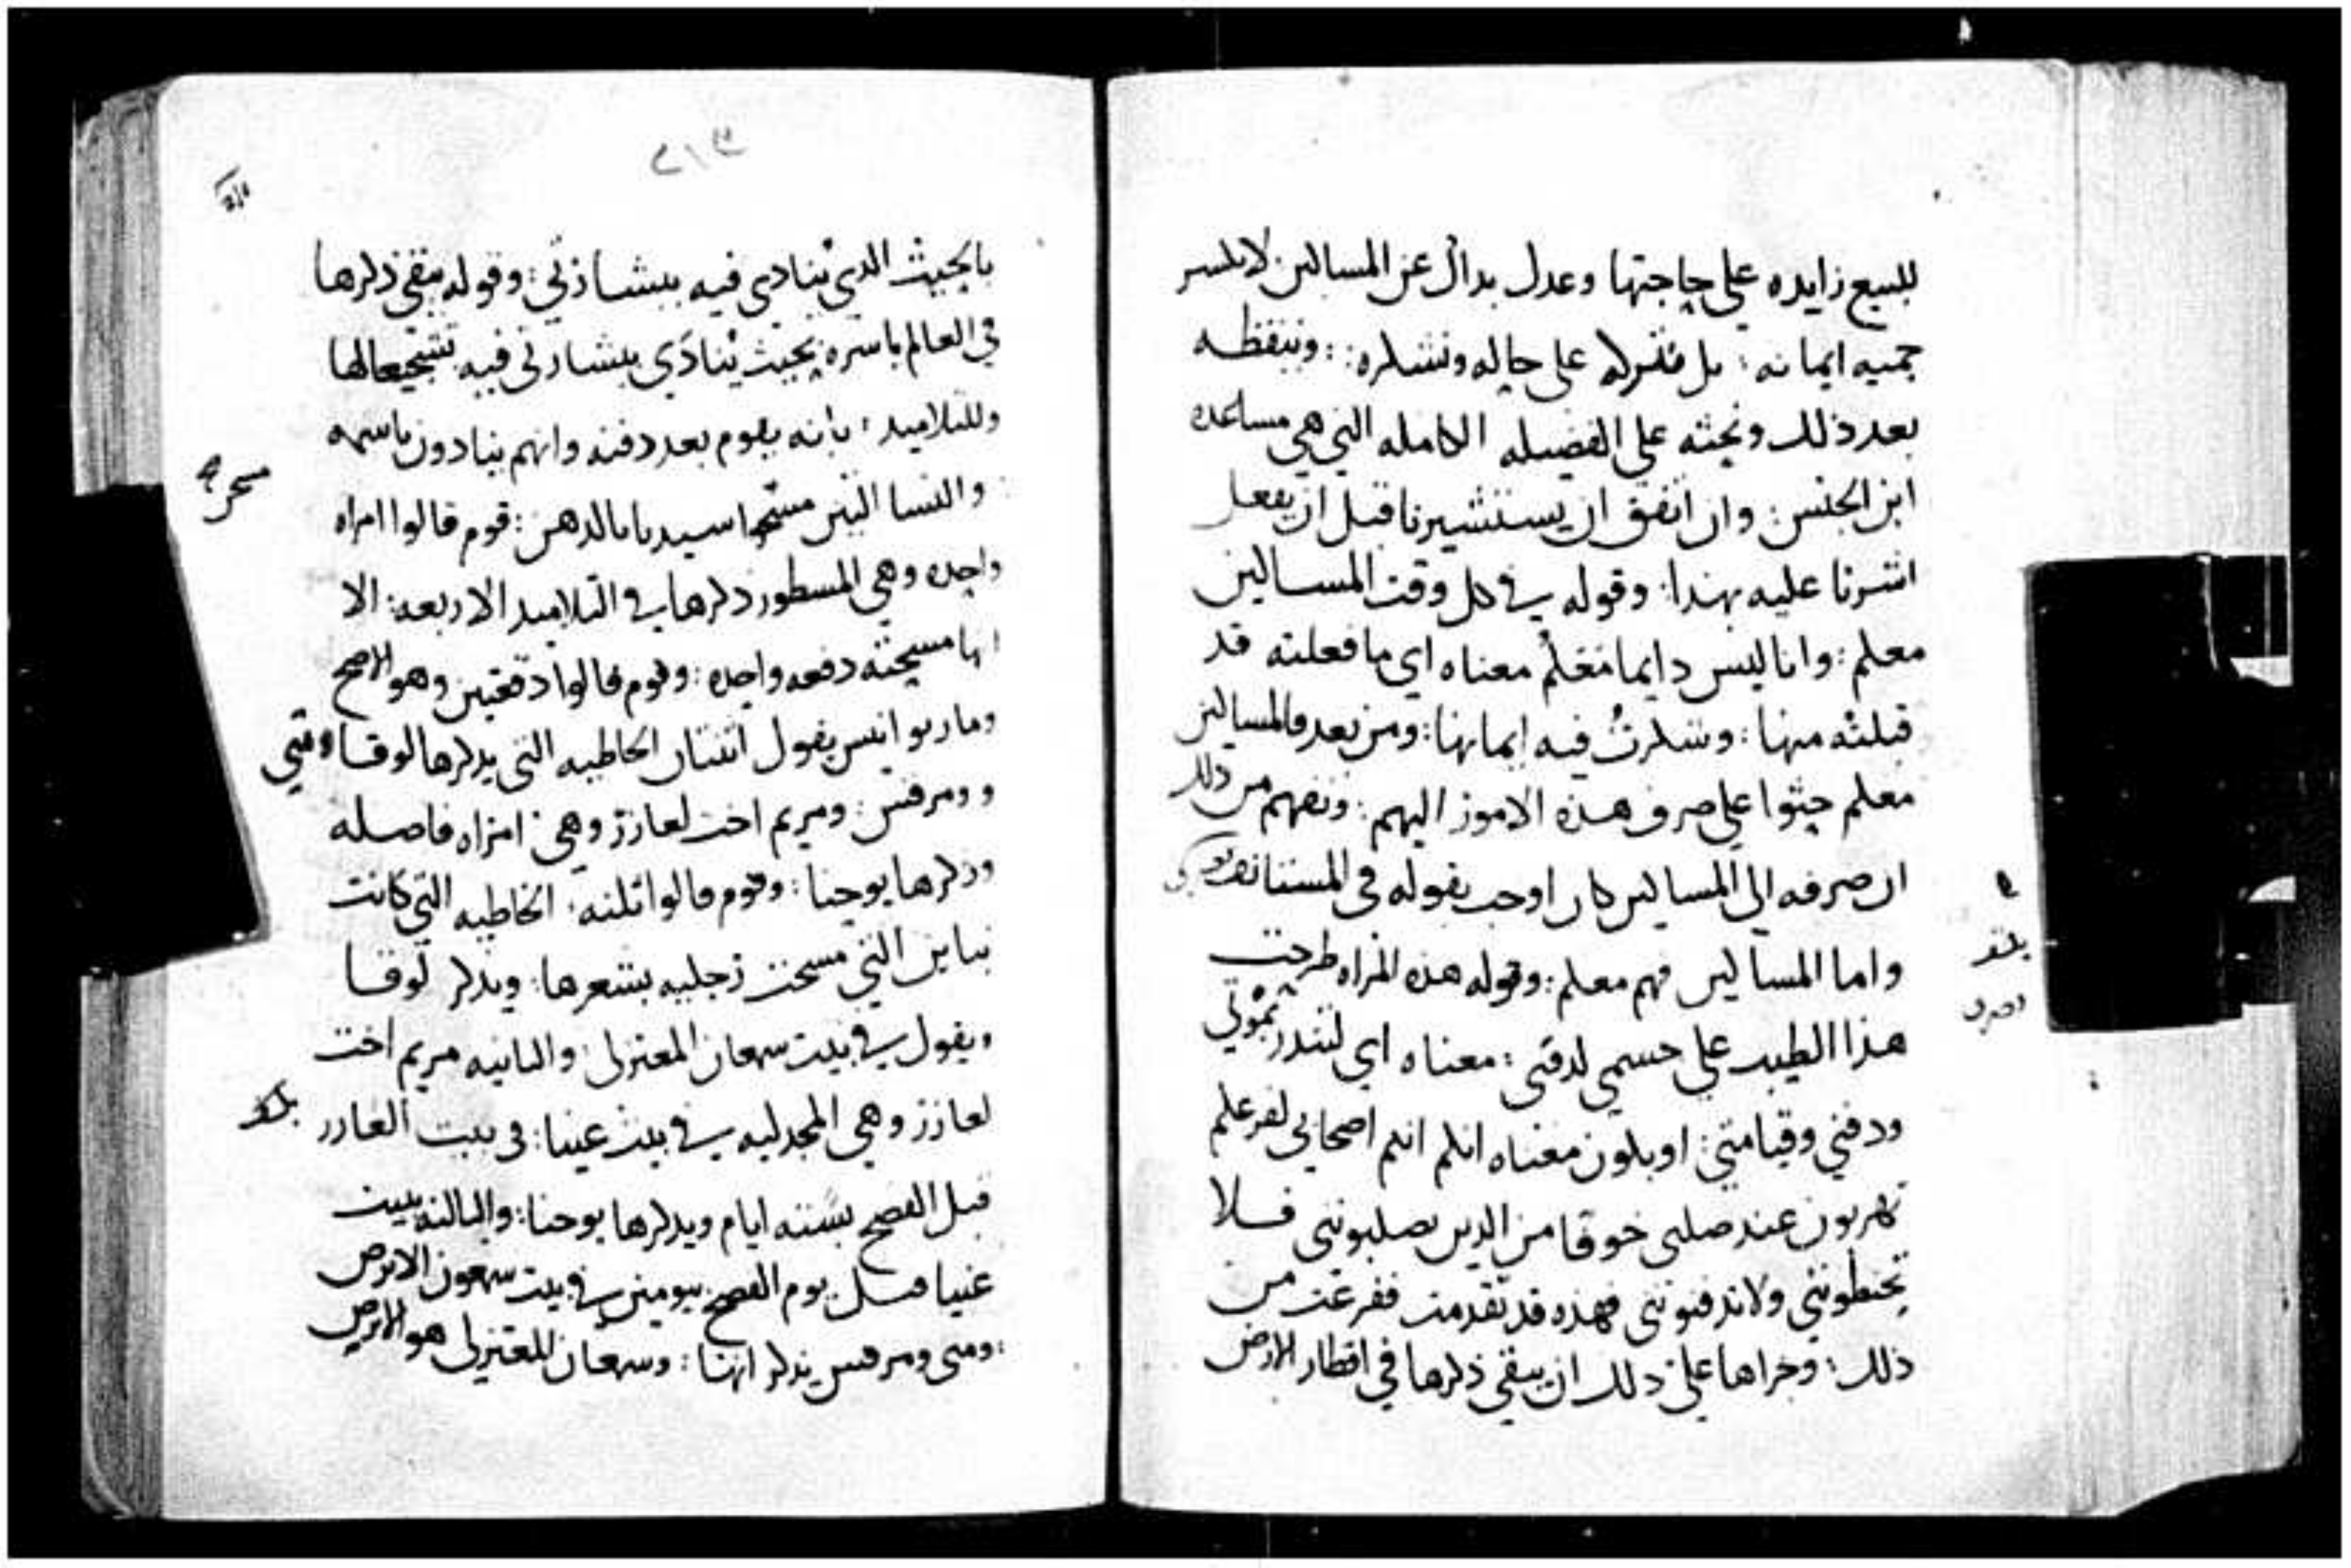 للبيع زايده علي حاجتها وعدل بدال عن المساكين لانكسر
حميه ايمانه : بل نتركه علي حاله ونشكره : وننفظه
بعد ذلك ونحثه علي الفضيله الكامله التي هي مساعده
ابن الجنس : وان اتفق ان يستشيرنا قبل ان يفعل
اشرنا عليه بهذا : وقوله في كل وقت المساكين
معكم : وانا ليس دايما معكم معناه اي ما فعلته قد
قبلته منها : وشكرت فيه ايمانها : ومن بعد فالمساكين
معكم حثوا علي صرف هذه الامور اليهم : ونفهم من ذلك
ان صرفه الي المساكين كان اوجب بقوله في المستانف
واما المساكين فهم معكم : وقوله هذه المراه طرحت
هذا الطيب علي جسمي لدفني : معناه اي لتنذر بموتي
ودفني وقيامتي : او يكون معناه انكم انتم اصحابي لفزعكم
تهربون عند صلبي خوفا من الذين يصلبونني فلا
تحنطونني ولا تدفنونني فهذه قد تقدمت ففرغت من
ذلك : وجزاها علي ذلك ان يبقي ذكرها في اقطار الارض
٢١٣
بالحيث الذي ينادي فيه ببشارتي : وقوله يبقي ذكرها
في العالم باسره بحيث ينادي ببشارتي فيه تشجيعا لها
وللتلاميد : بانه يقوم بعد دفنه وانهم ينادون باسمه
والنسا التين مسحوا سيدنا بالدهن : قوم قالوا امراه
واحده وهي المسطور ذكرها في التلاميد الاربعه : الا
انها مسحته دفعه واحده : وقوم قالوا دفعتين وهو الاصح
وماريوانيس يقول اتنتان الخاطيه التي يدكرها لوقا ومتي
ومرقس : ومريم اخت لعازر وهي امراه فاضله
وذكرها يوحنا : وقوم قالوا تلته : الخاطيه التي كانت
بناين التي مسحت رجليه بشعرها : ويدكر لوقا
ويقول في بيت سمعان المعتزلي : والتانيه مريم اخت
لعازر وهي المجدليه في بيت عنيا : في بيت العازر
قبل الفصح بسته ايام ويدكرها يوحنا : والتالته ببيت
عنيا قبل يوم الفصح بيومين في بيت سمعون الابرص
ومتي ومرقس يذكرانها : وسمعان المعتزلي هو الابرص